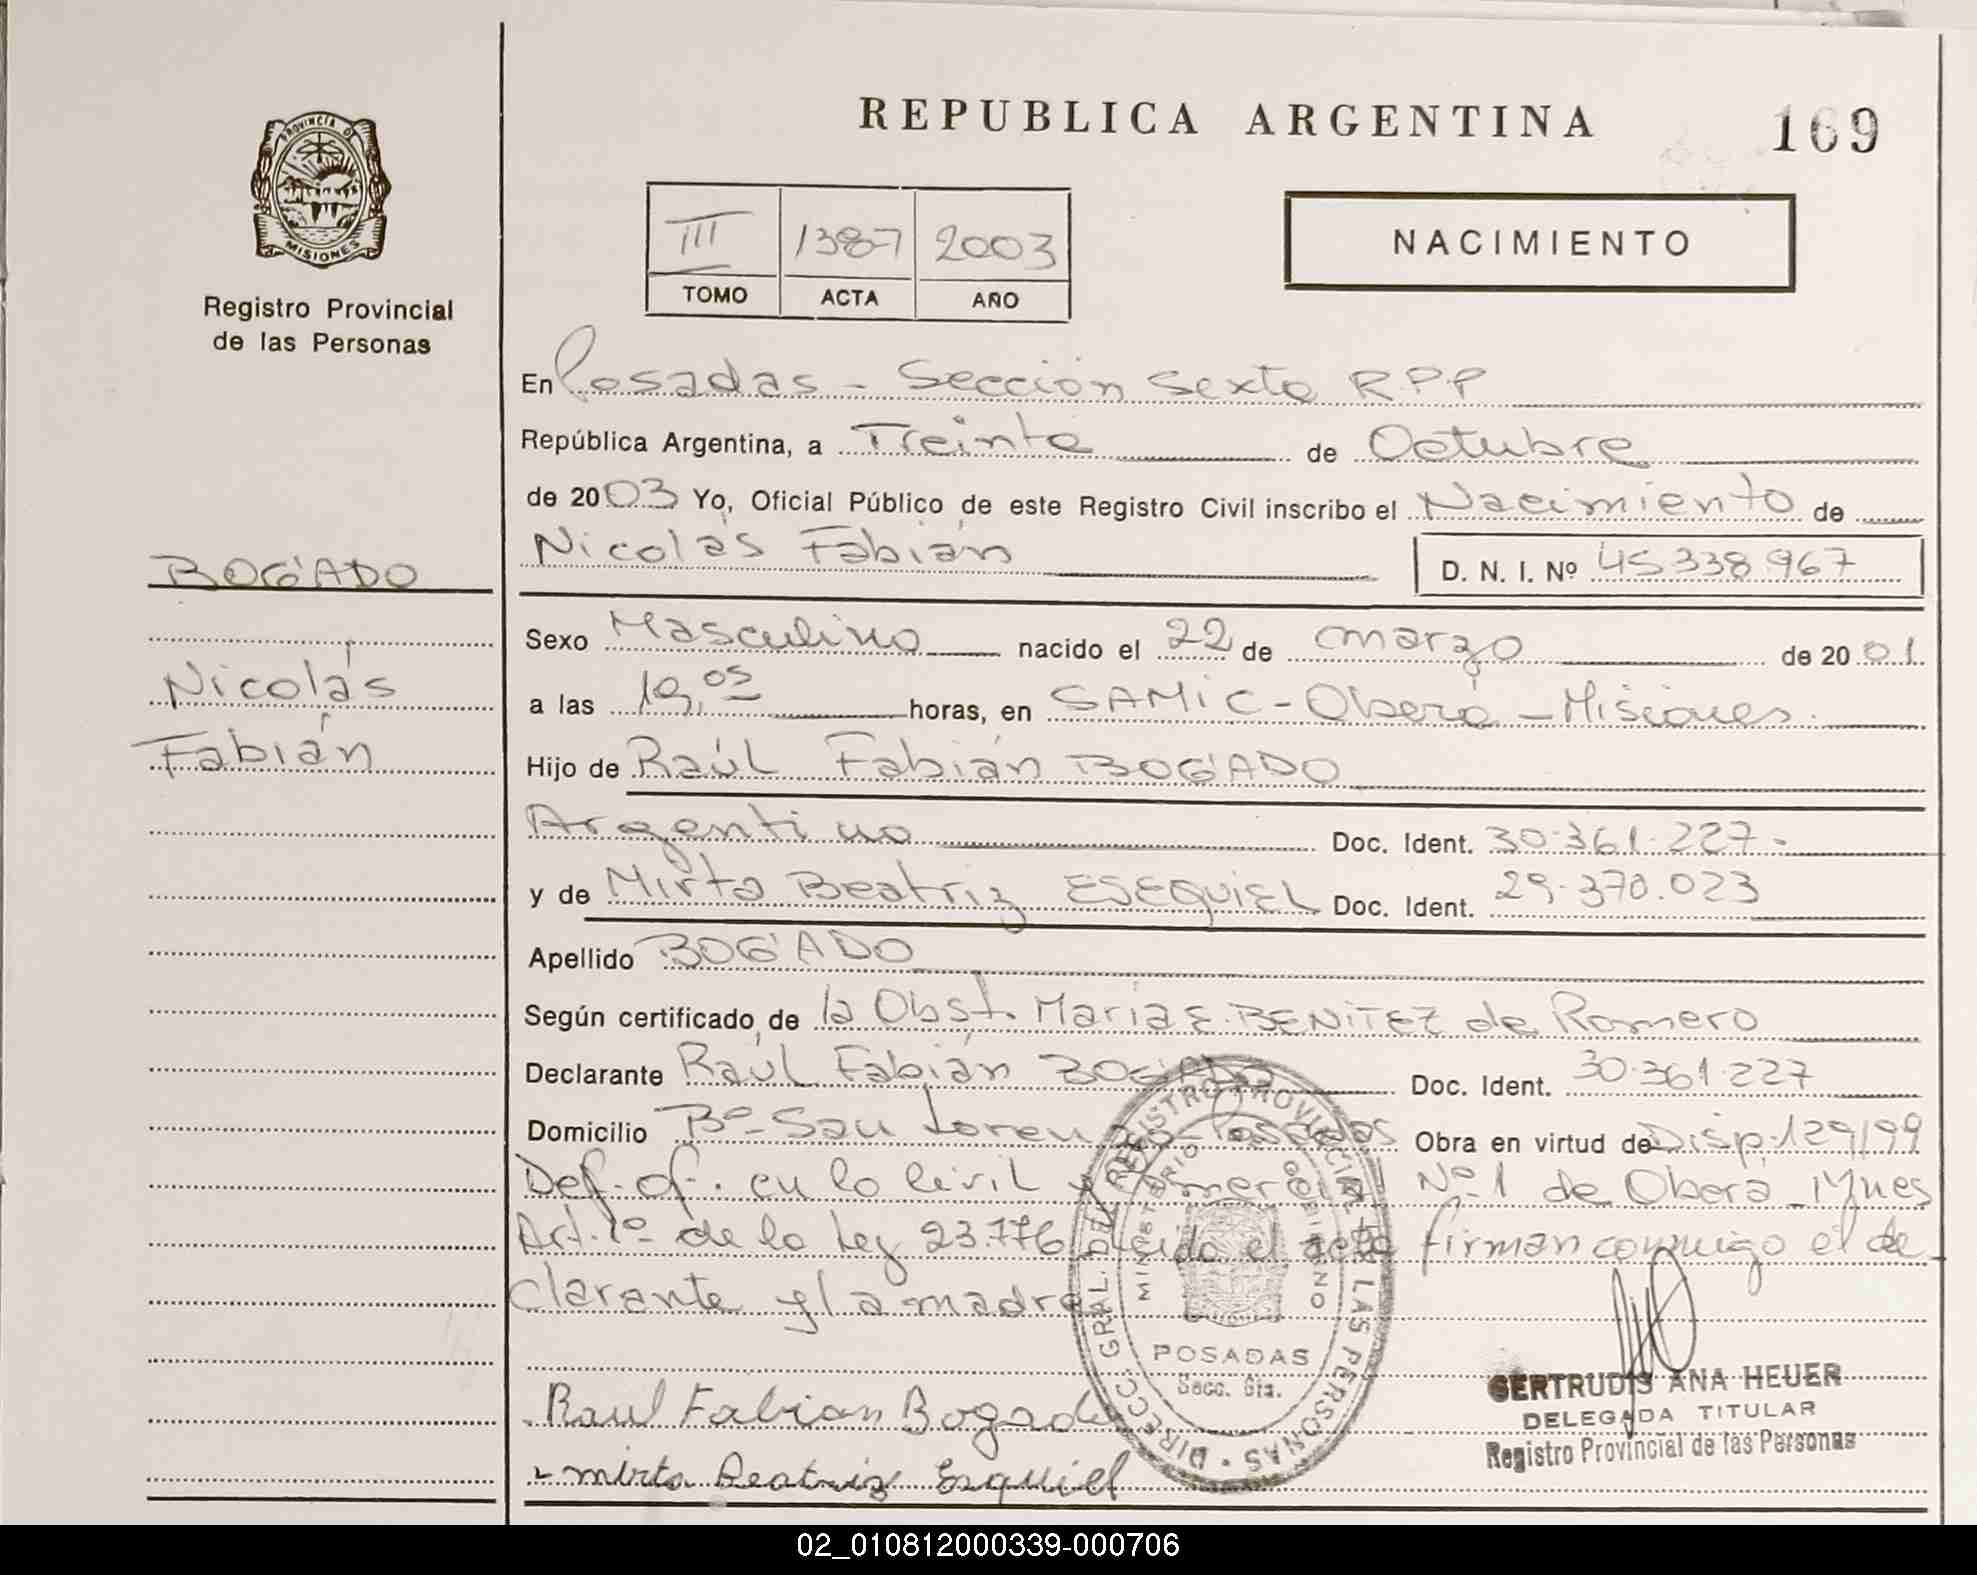 REPUBLICA ARGENTINA
169
PROVINCIA DE MISIONES
Registro Provincial
de las Personas
III 1387 2003
TOMO ACTA AÑO
NACIMIENTO
En Posadas - Sección Sexta R.P.P
República Argentina, a Treinta de Octubre
de 2003 Yo, Oficial Público de este Registro Civil inscribo el Nacimiento de
Nicolás Fabián
D. N. I. Nº 45 338 967
BOGADO
Nicolás
Fabián
Sexo Masculino nacido el 22 de marzo de 2001
a las 19,05 horas, en SAMIC - Oberá - Misiones.
Hijo de Raúl Fabián BOGADO
Argentino Doc. Ident. 30.361.227-
y de Mirta Beatriz ESEQUIEL Doc. Ident. 29.370.023
Apellido BOGADO
Según certificado de la Obst. María E. BENITEZ de Romero
Declarante Raúl Fabián BOGADO Doc. Ident. 30.361.227
Domicilio Bº San Lorenzo - Posadas Obra en virtud de Disp. 129/99
Def. of. en lo Civil y Comercial Nº 1 de Oberá Mnes
Art. 1º de la Ley 23.776 Leída el acta firman conmigo el de
clarante y la madre
DIRECC. GRAL. DEL REGISTRO PROVINCIAL DE LAS PERSONAS
MINISTERIO DE GOBIERNO
POSADAS
Secc. 6ta.
Raul Fabian Bogado
mirta Beatriz Esquiel
GERTRUDIS ANA HEUER
DELEGADA TITULAR
Registro Provincial de las Personas
02_010812000339-000706